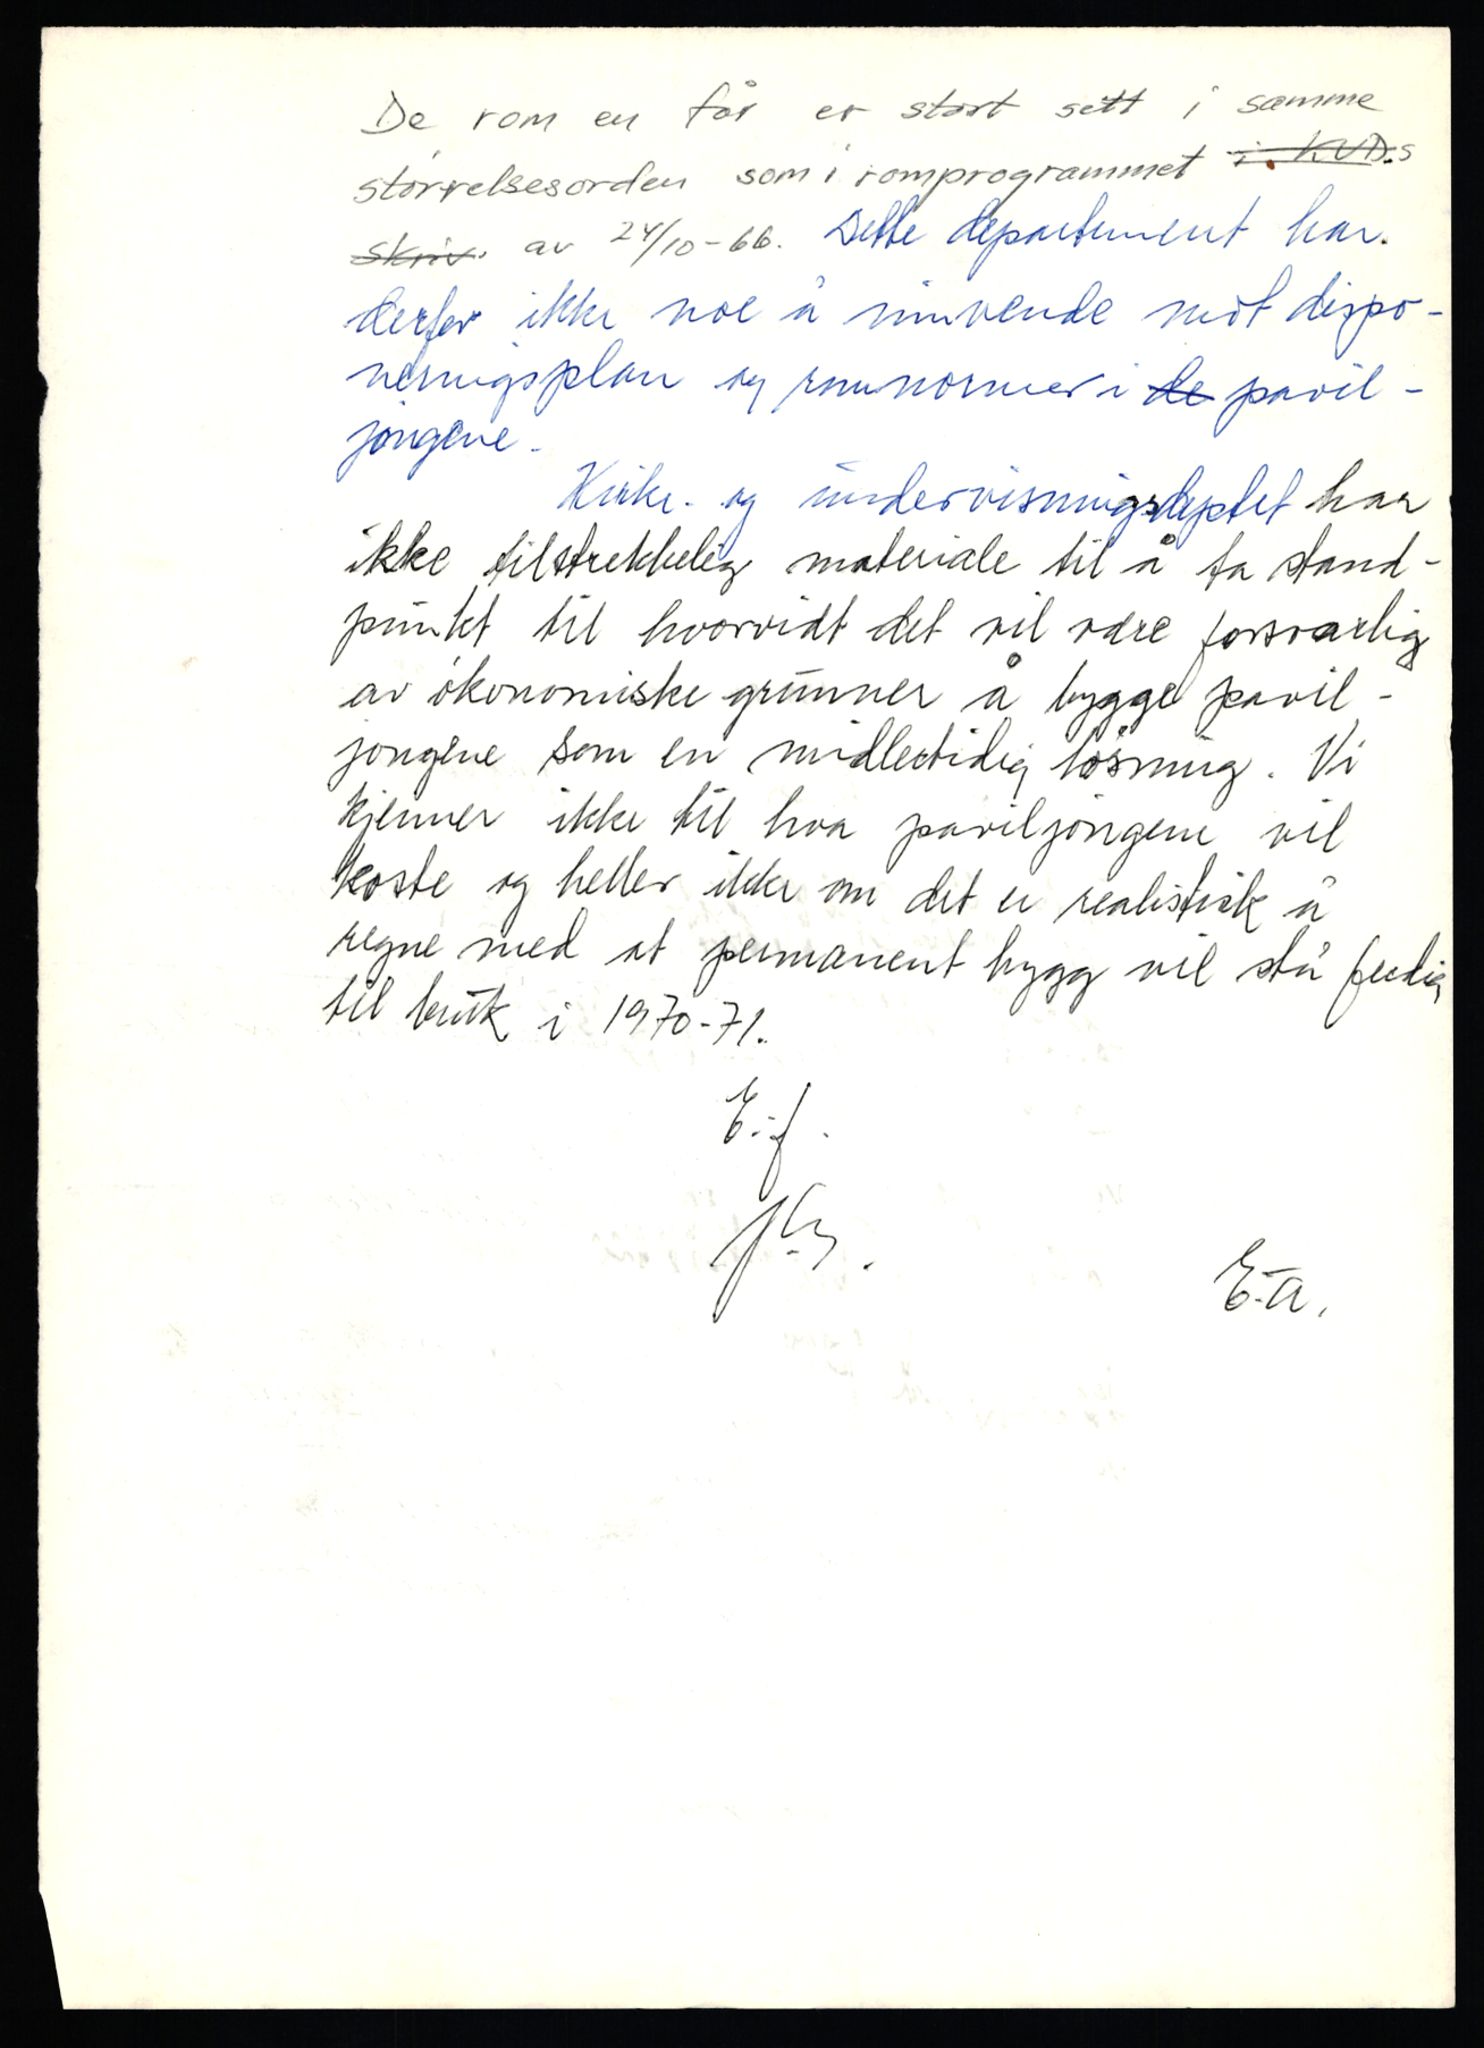 De rom en får er stort sett i samme
størrelsesorden som i romprogrammet i KUD.s
skriv. av 24/10-66. Dette departement har
derfor ikke noe å innvende mot dispo-
neringsplan og romnormer i de pavil-
jongene.
Kirke- og undervisningsdeptet har
ikke tilstrekkelig materiale til å ta stand-
punkt til hvorvidt det vil være forsvarlig
av økonomiske grunner å bygge pavil-
jongene som en midlertidig løsning. Vi
kjenner ikke til hva paviljongene vil
koste og heller ikke om det er realistisk å
regne med at permanent bygg vil stå ferdig
til bruk i 1970-71.
E.f.
E.a.